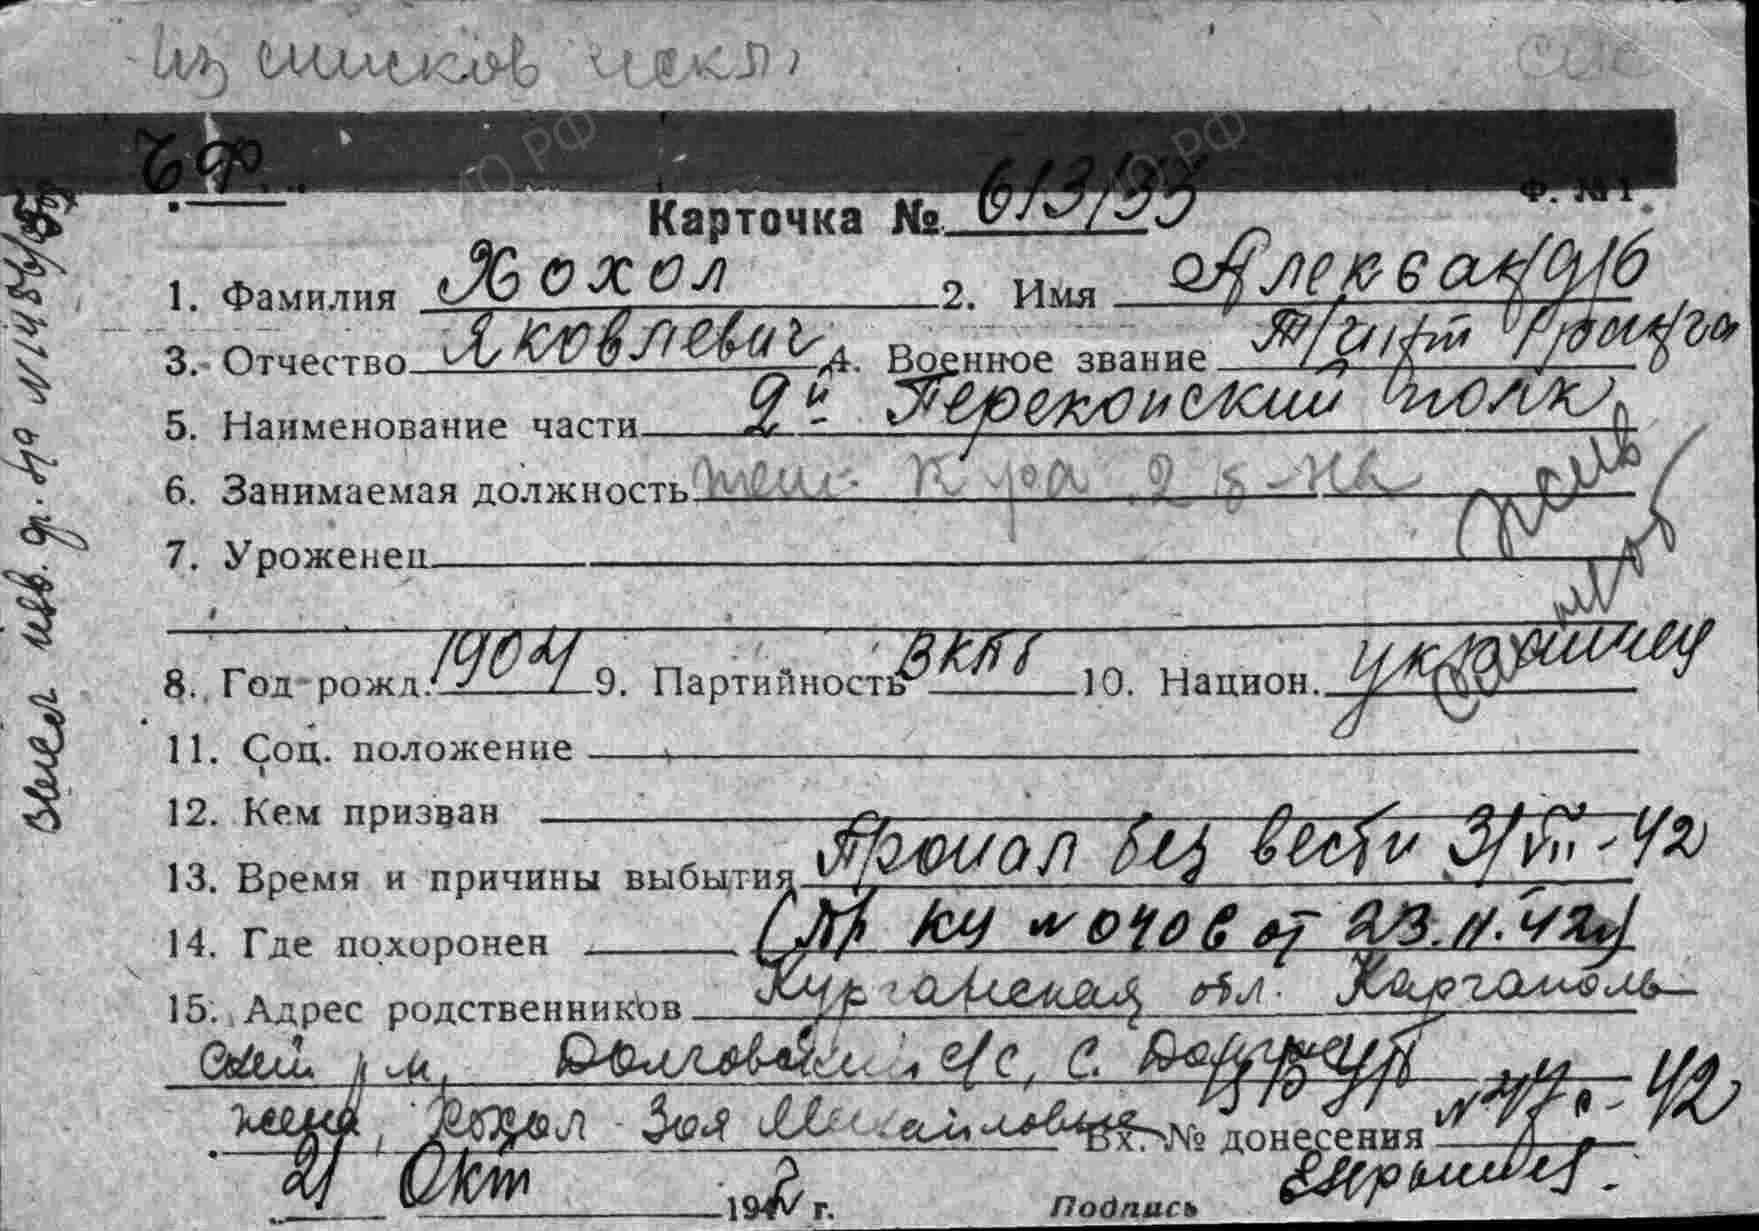 Из списков искл.
ЧФ
Ф. № 1
Карточка № 613/35
1. Фамилия Хохол 2. Имя Александр
3. Отчество Яковлевич 4. Военное звание Т/инт ранга
5. Наименование части 2й Перекопский полк
6. Занимаемая должность 2 б-на
7. Уроженец
8. Год рожд. 1904 9. Партийность ВКПб 10. Национ. украинец
11. Соц. положение
12. Кем призван
13. Время и причины выбытия Пропал без вести 3/VII-42
14. Где похоронен (Пр КЧ № 0406 от 23.11.42г)
15. Адрес родственников Курганская обл. Каргаполь
ский р-н, Долговский с/с, с.
жена, Хохол Зоя Михайловна Вх. № донесения № 247с-42
21 Окт 1942 г. Подпись
МО РФ
МО РФ